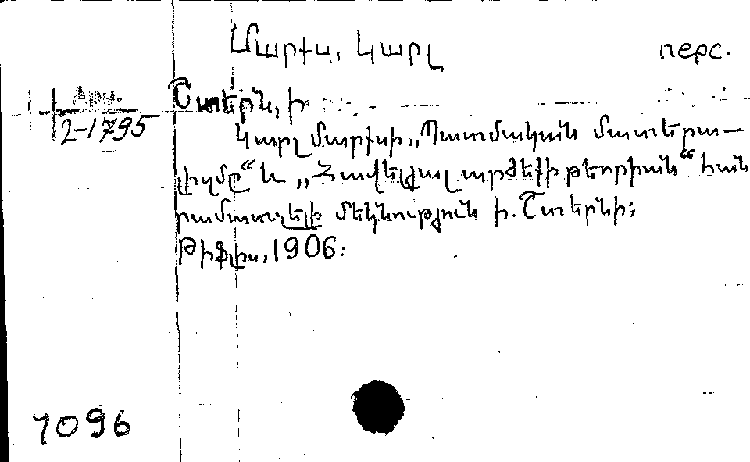 Մարքս, Կարլ перс.
Արմ.
2-1795
Շտերն, ի
Կարլ Մարքսի „Պատմական մատերիա-
լիզմը“ եւ „Հավելյալ արժեքի թեորիան“ հան
րամատչելի մեկնություն ի. Շտերնի:
Թիֆլիս, 1906:
7096